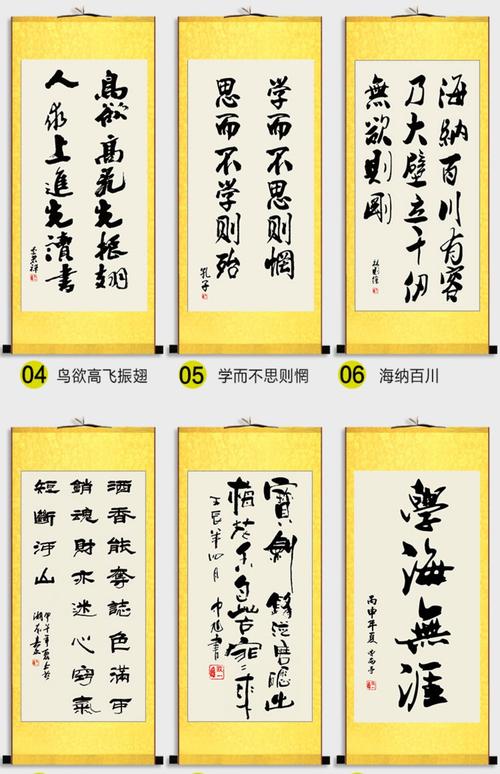 鳥欲高飛先振翅
人求上進先讀書
学而不思则惘
思而不学则殆
孔子
海納百川有容
乃大壁立千仞
無欲則剛
林则徐
04 鸟欲高飞振翅
05 学而不思则惘
06 海纳百川
酒香能奪誌色滿可
銷魂財亦迷心竅氣
短斷河山
寶劍鋒從磨礪出
梅花香自苦寒來
壬辰年四月
學海無涯
丙申年夏